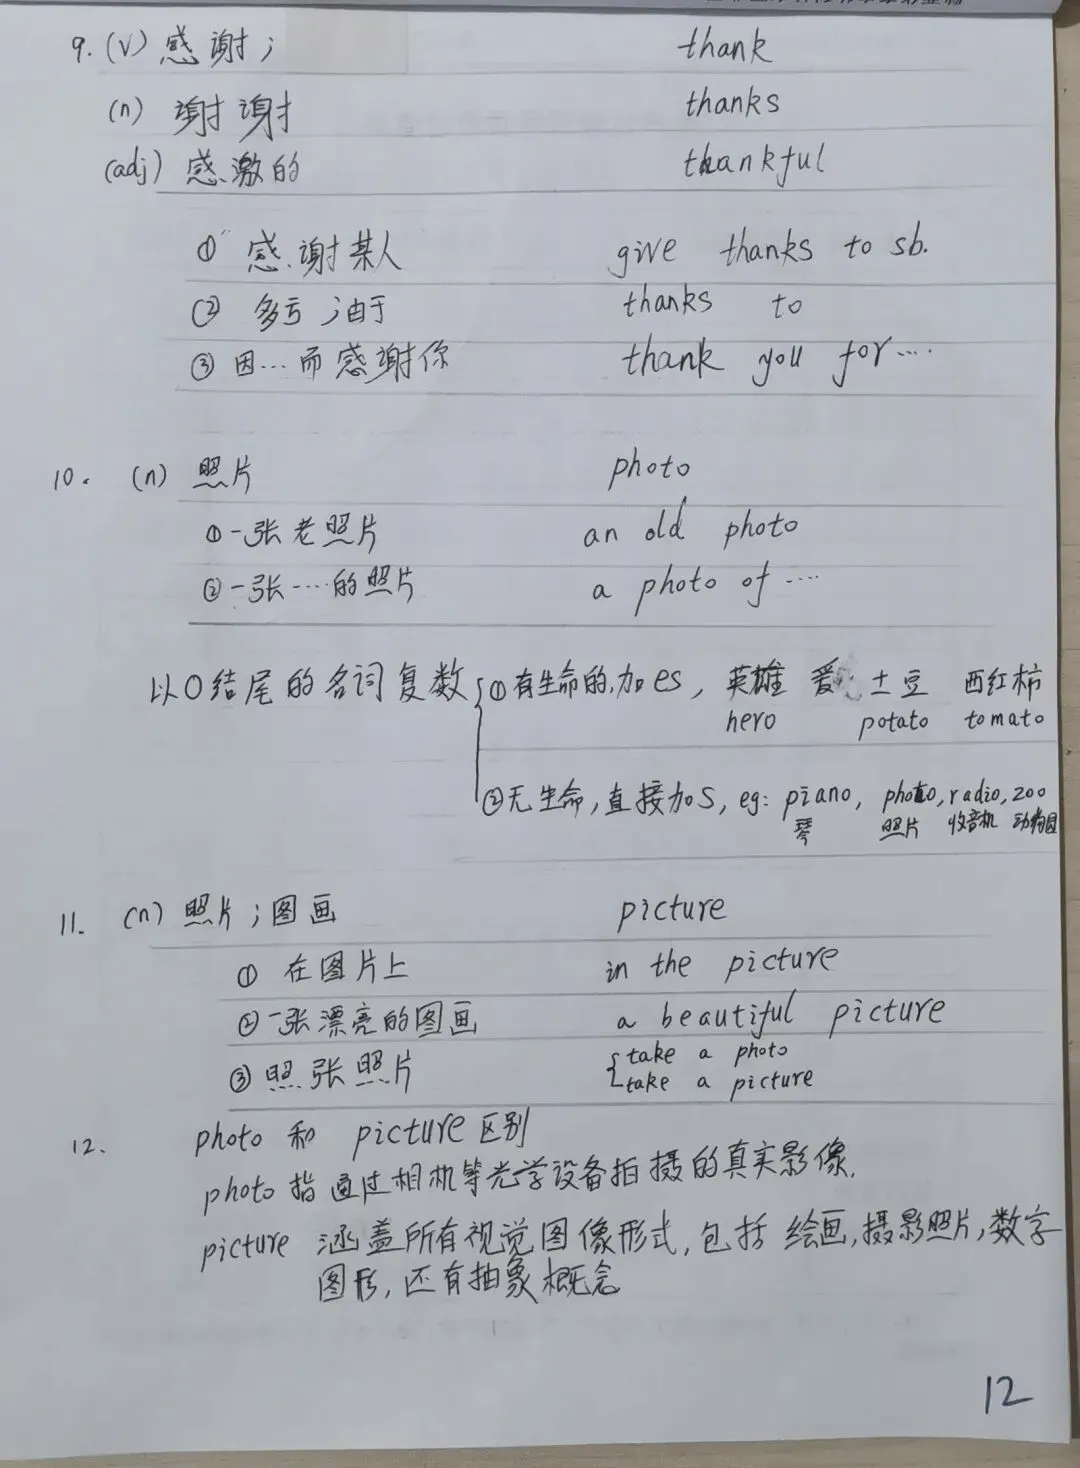 9. (v) 感谢; thank
(n) 谢谢 thanks
(adj) 感激的 thankful
① 感谢某人 give thanks to sb.
② 多亏;由于 thanks to
③ 因…而感谢你 thank you for….
10. (n) 照片 photo
①一张老照片 an old photo
②一张….的照片 a photo of ….
以O结尾的名词复数 ①有生命的,加es, 英雄 爱 土豆 西红柿
hero potato tomato
②无生命,直接加S, eg: piano, photo, radio, zoo
琴 照片 收音机 动物园
11. (n) 照片;图画 picture
① 在图片上 in the picture
②一张漂亮的图画 a beautiful picture
③ 照张照片 take a photo
take a picture
12. photo 和 picture 区别
photo 指通过相机等光学设备拍摄的真实影像.
picture 涵盖所有视觉图像形式, 包括 绘画, 摄影照片, 数字
图形, 还有抽象概念
12